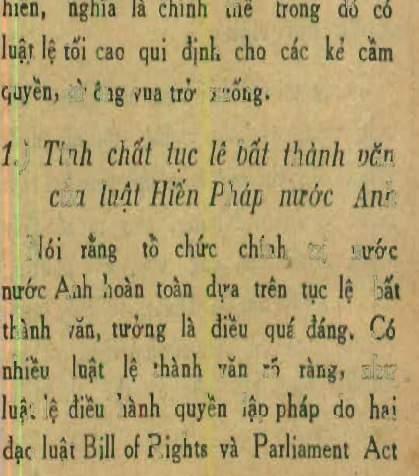 hiến, nghĩa là chính thể trong đó có
luật lệ tối cao qui định cho các kẻ cầm
quyền, từ ông vua trở xuống.
1.) Tính chất tục lệ bất thành văn
của luật Hiến Pháp nước Anh
Nói rằng tổ chức chính trị nước
nước Anh hoàn toàn dựa trên tục lệ bất
thành văn, tưởng là điều quá đáng. Có
nhiều luật lệ thành văn rõ ràng, như
luật lệ điều hành quyền lập pháp do hai
đạc luật Bill of Rights và Parliament Act